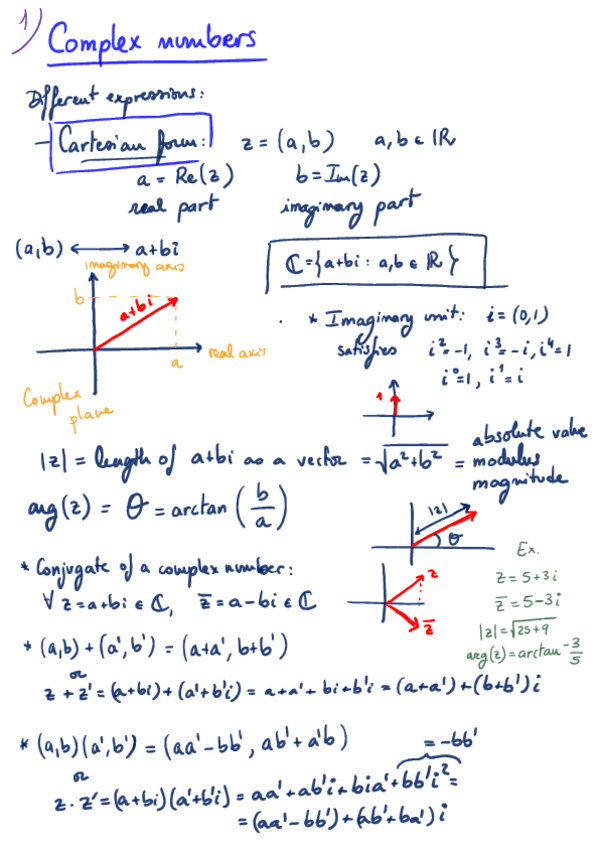 1)
Complex numbers
Different expressions:
- Cartesian form: z = (a,b) a,b ∈ ℝ
a = Re(z) b = Im(z)
real part imaginary part
(a,b) ⟷ a+bi
ℂ = {a+bi : a,b ∈ ℝ}
imaginary axis
b
a+bi
real axis
a
Complex
plane
* Imaginary unit: i = (0,1)
satisfies i² = -1, i³ = -i, i⁴ = 1
i⁰ = 1, i¹ = i
1
|z| = length of a+bi as a vector = √(a²+b²) = absolute value
modulus
magnitude
arg(z) = θ = arctan (b/a)
|z|
θ
* Conjugate of a complex number:
∀ z = a+bi ∈ ℂ, z̅ = a-bi ∈ ℂ
z
z̅
Ex.
z = 5+3i
z̅ = 5-3i
|z| = √(25+9)
arg(z) = arctan -3/5
* (a,b) + (a',b') = (a+a', b+b')
or
z + z' = (a+bi) + (a'+b'i) = a+a'+bi+b'i = (a+a')+(b+b')i
* (a,b)(a',b') = (aa'-bb', ab'+a'b)
or
= -bb'
z · z' = (a+bi)(a'+b'i) = aa'+ab'i+bia'+bb'i² =
= (aa'-bb')+(ab'+ba')i